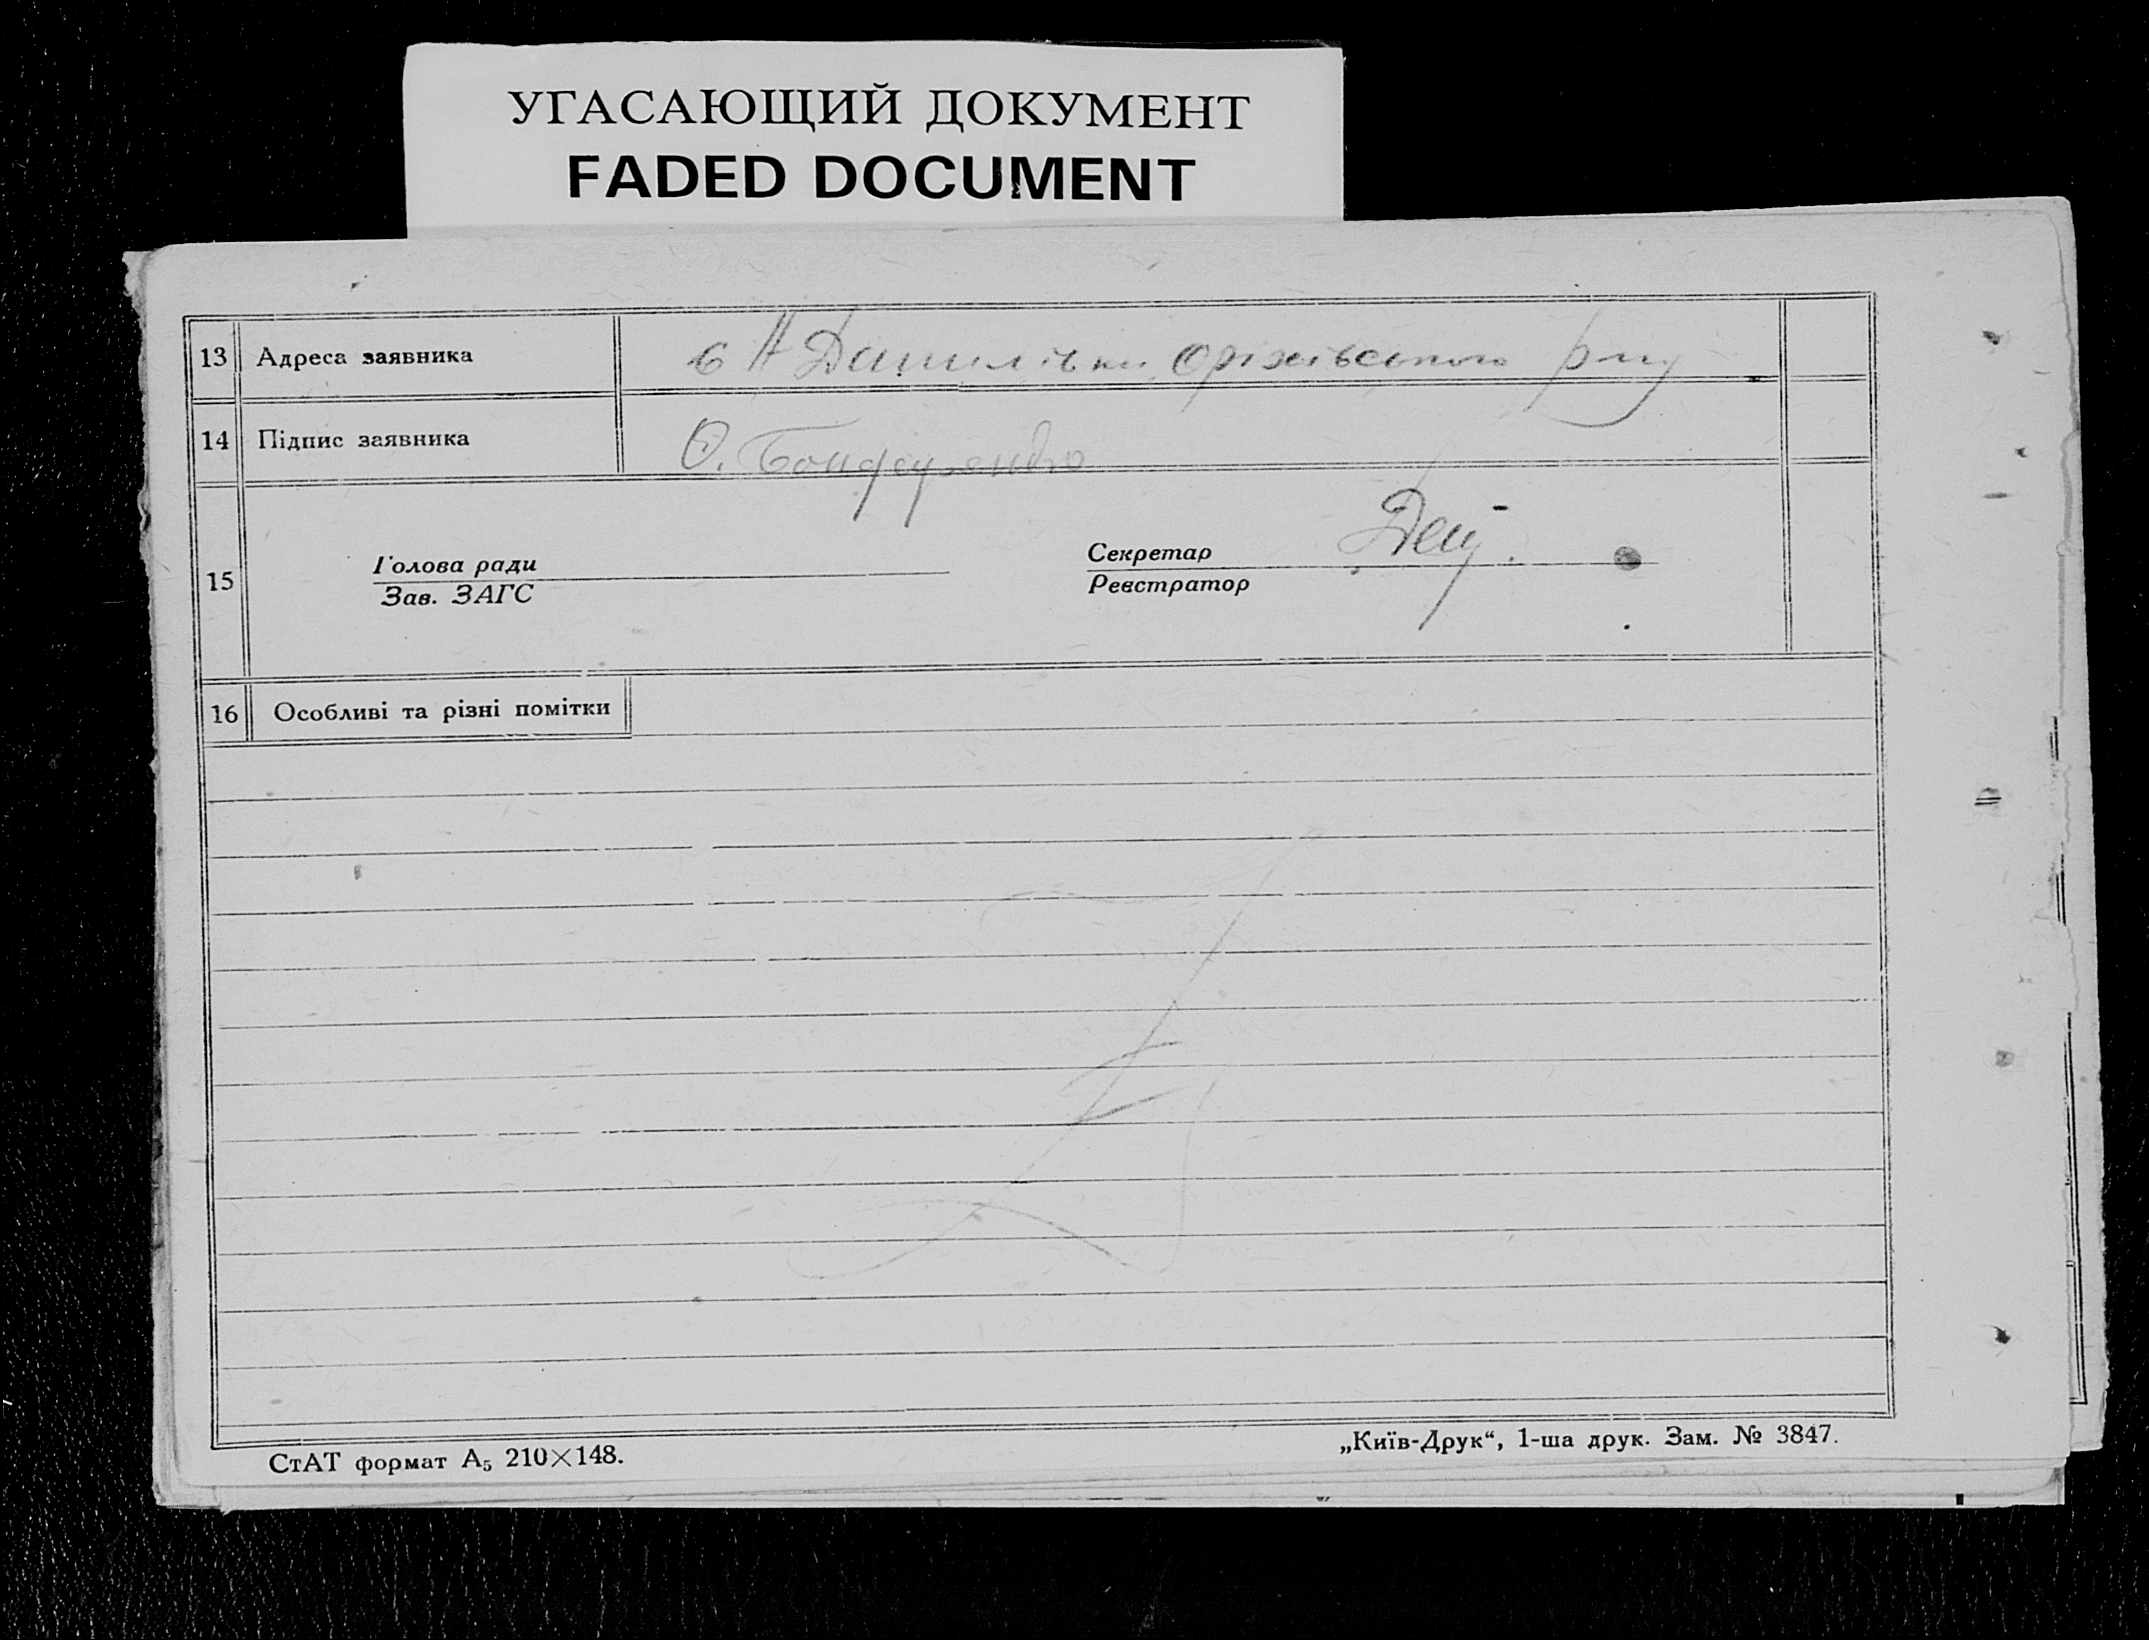 УГАСАЮЩИЙ ДОКУМЕНТ
FADED DOCUMENT
13 Адреса заявника с Н Данилівки Оріхівського р-ну
14 Підпис заявника О. Бондаренко
15
Голова ради
Зав. ЗАГС
Секретар
Реєстратор
16 Особливі та різні помітки
СтАТ формат А₅ 210×148.
„Київ-Друк“, 1-ша друк. Зам. № 3847.